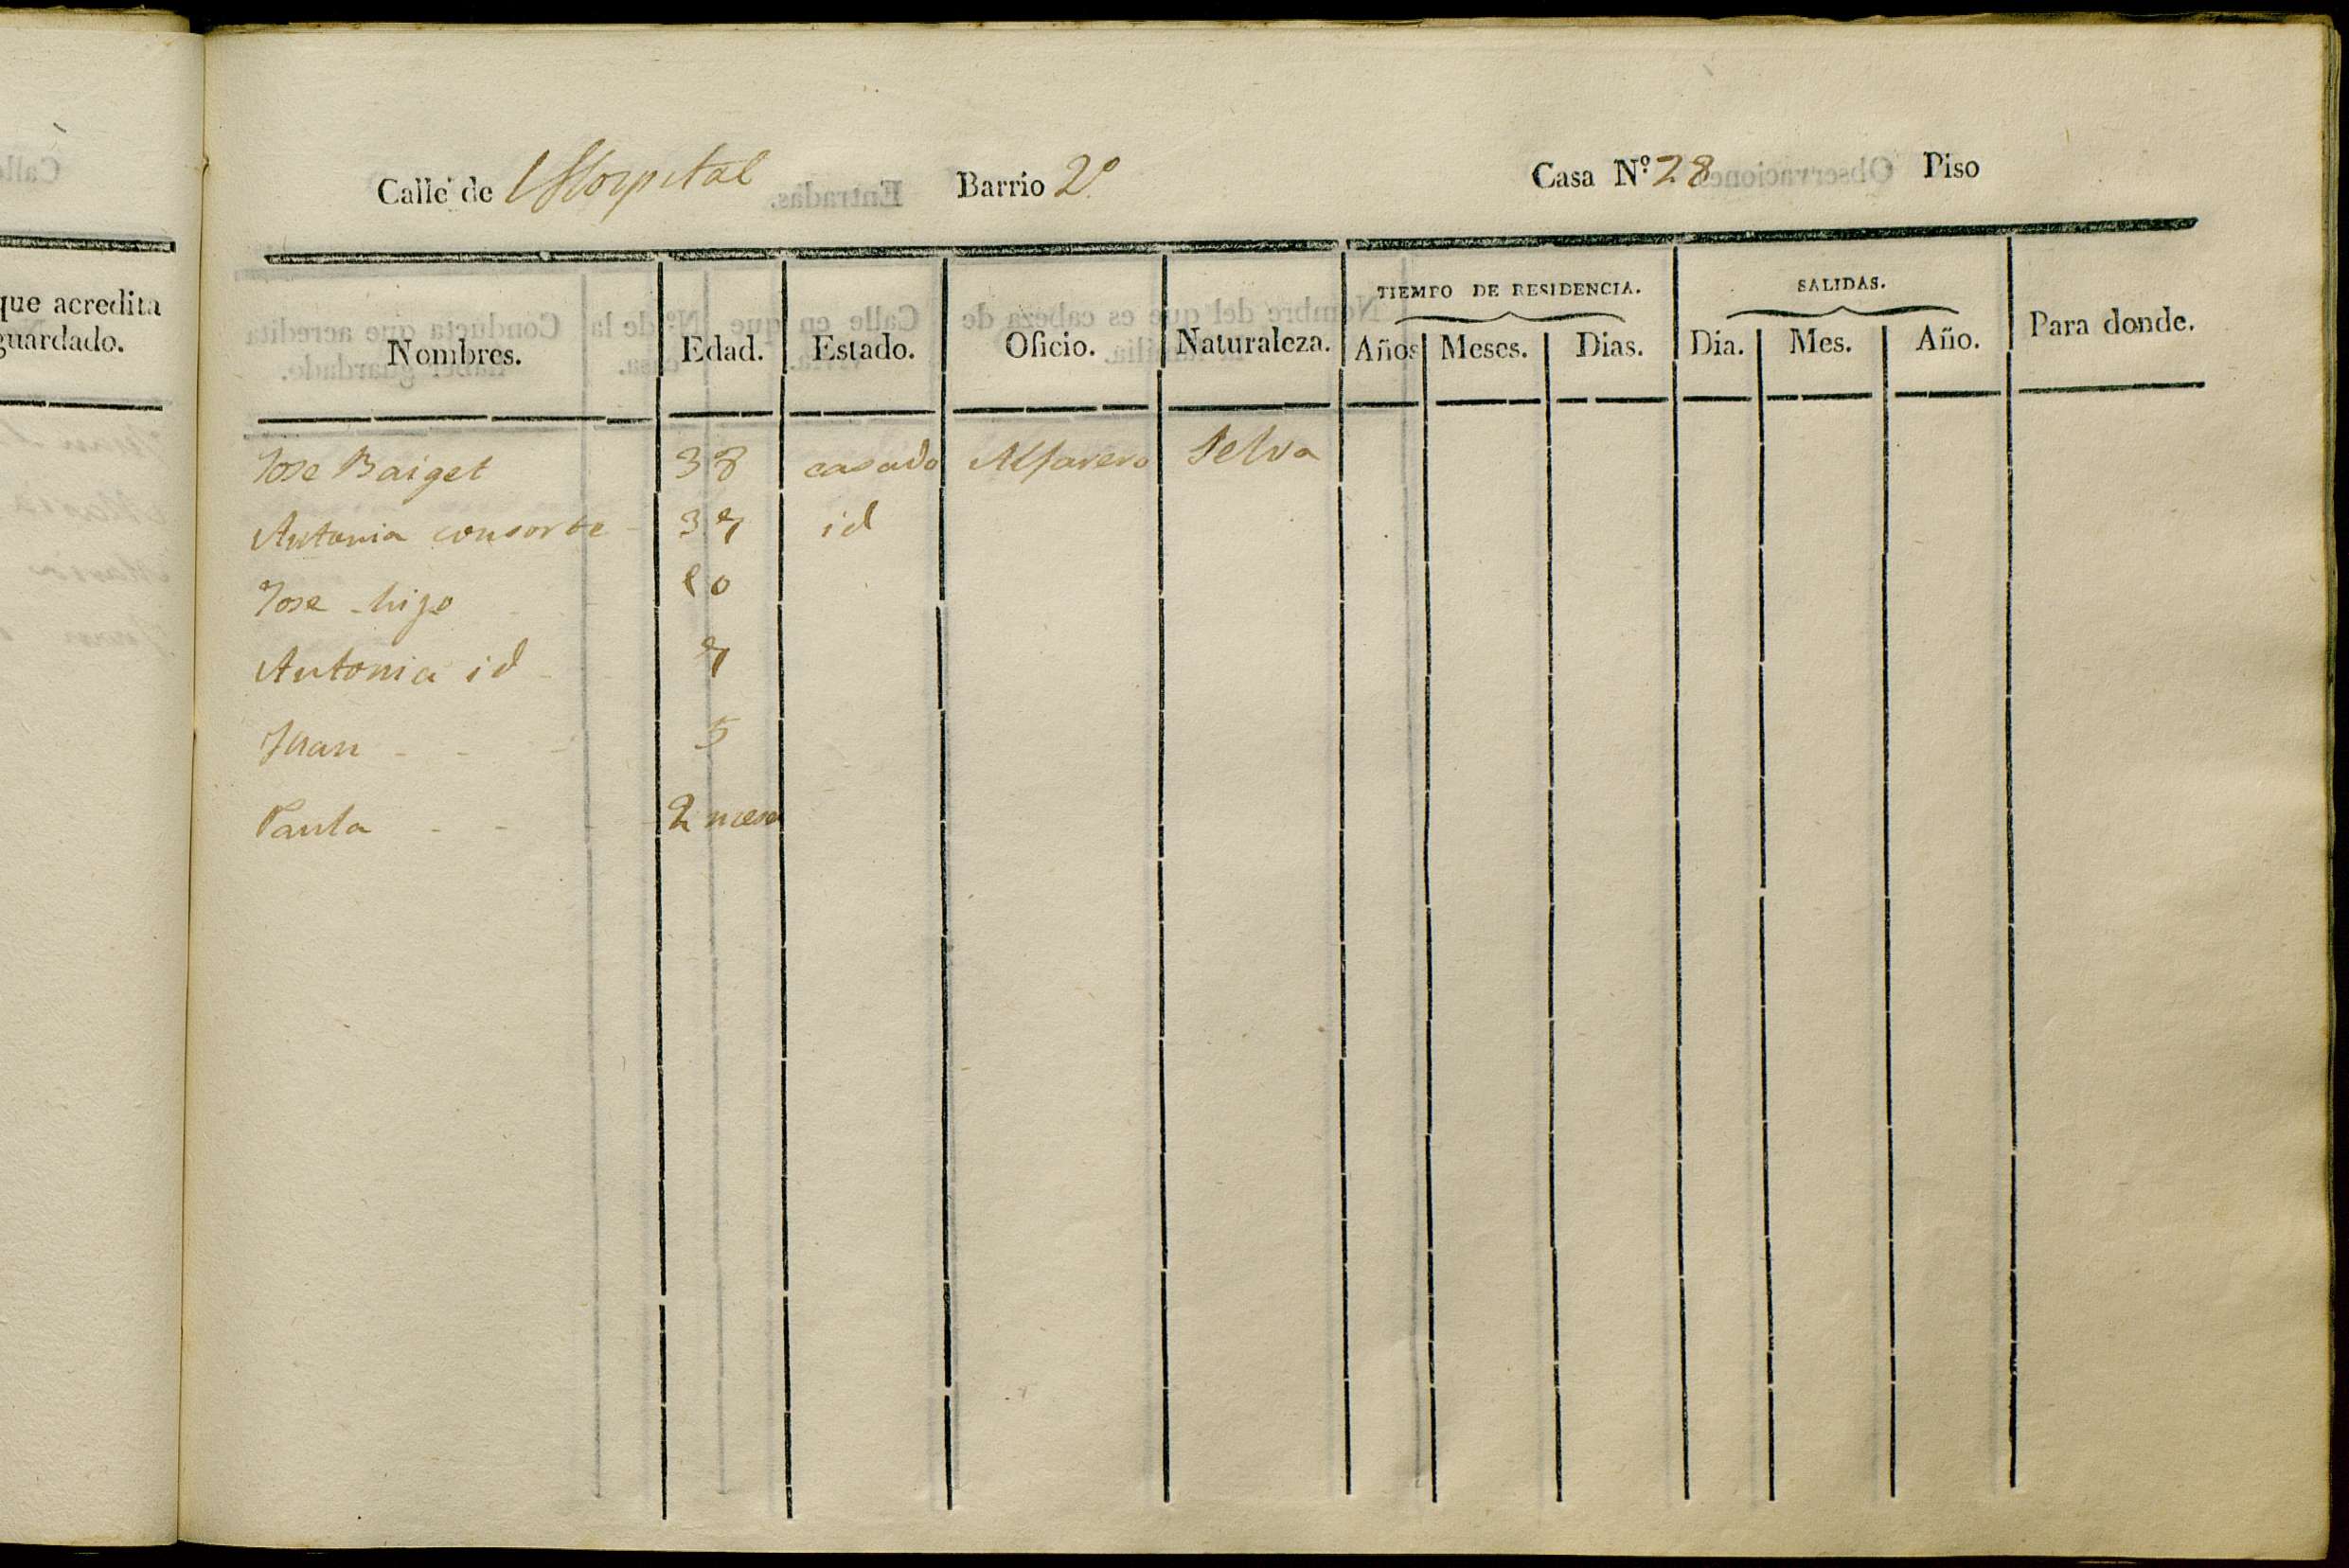 que acredita
guardado.
Calle de Hospital Barrio 2º Casa Nº 28 Piso
TIEMPO DE RESIDENCIA. SALIDAS.
Nombres. Edad. Estado. Oficio. Naturaleza. Años Meses. Dias. Dia. Mes. Año. Para donde.
Jose Baiget 38 casado Alfarero Selva
Antonia consorte - 37 id
Jose - hijo 10
Antonia id - 7
Juan - - - 5
Paula - - - 2 mese